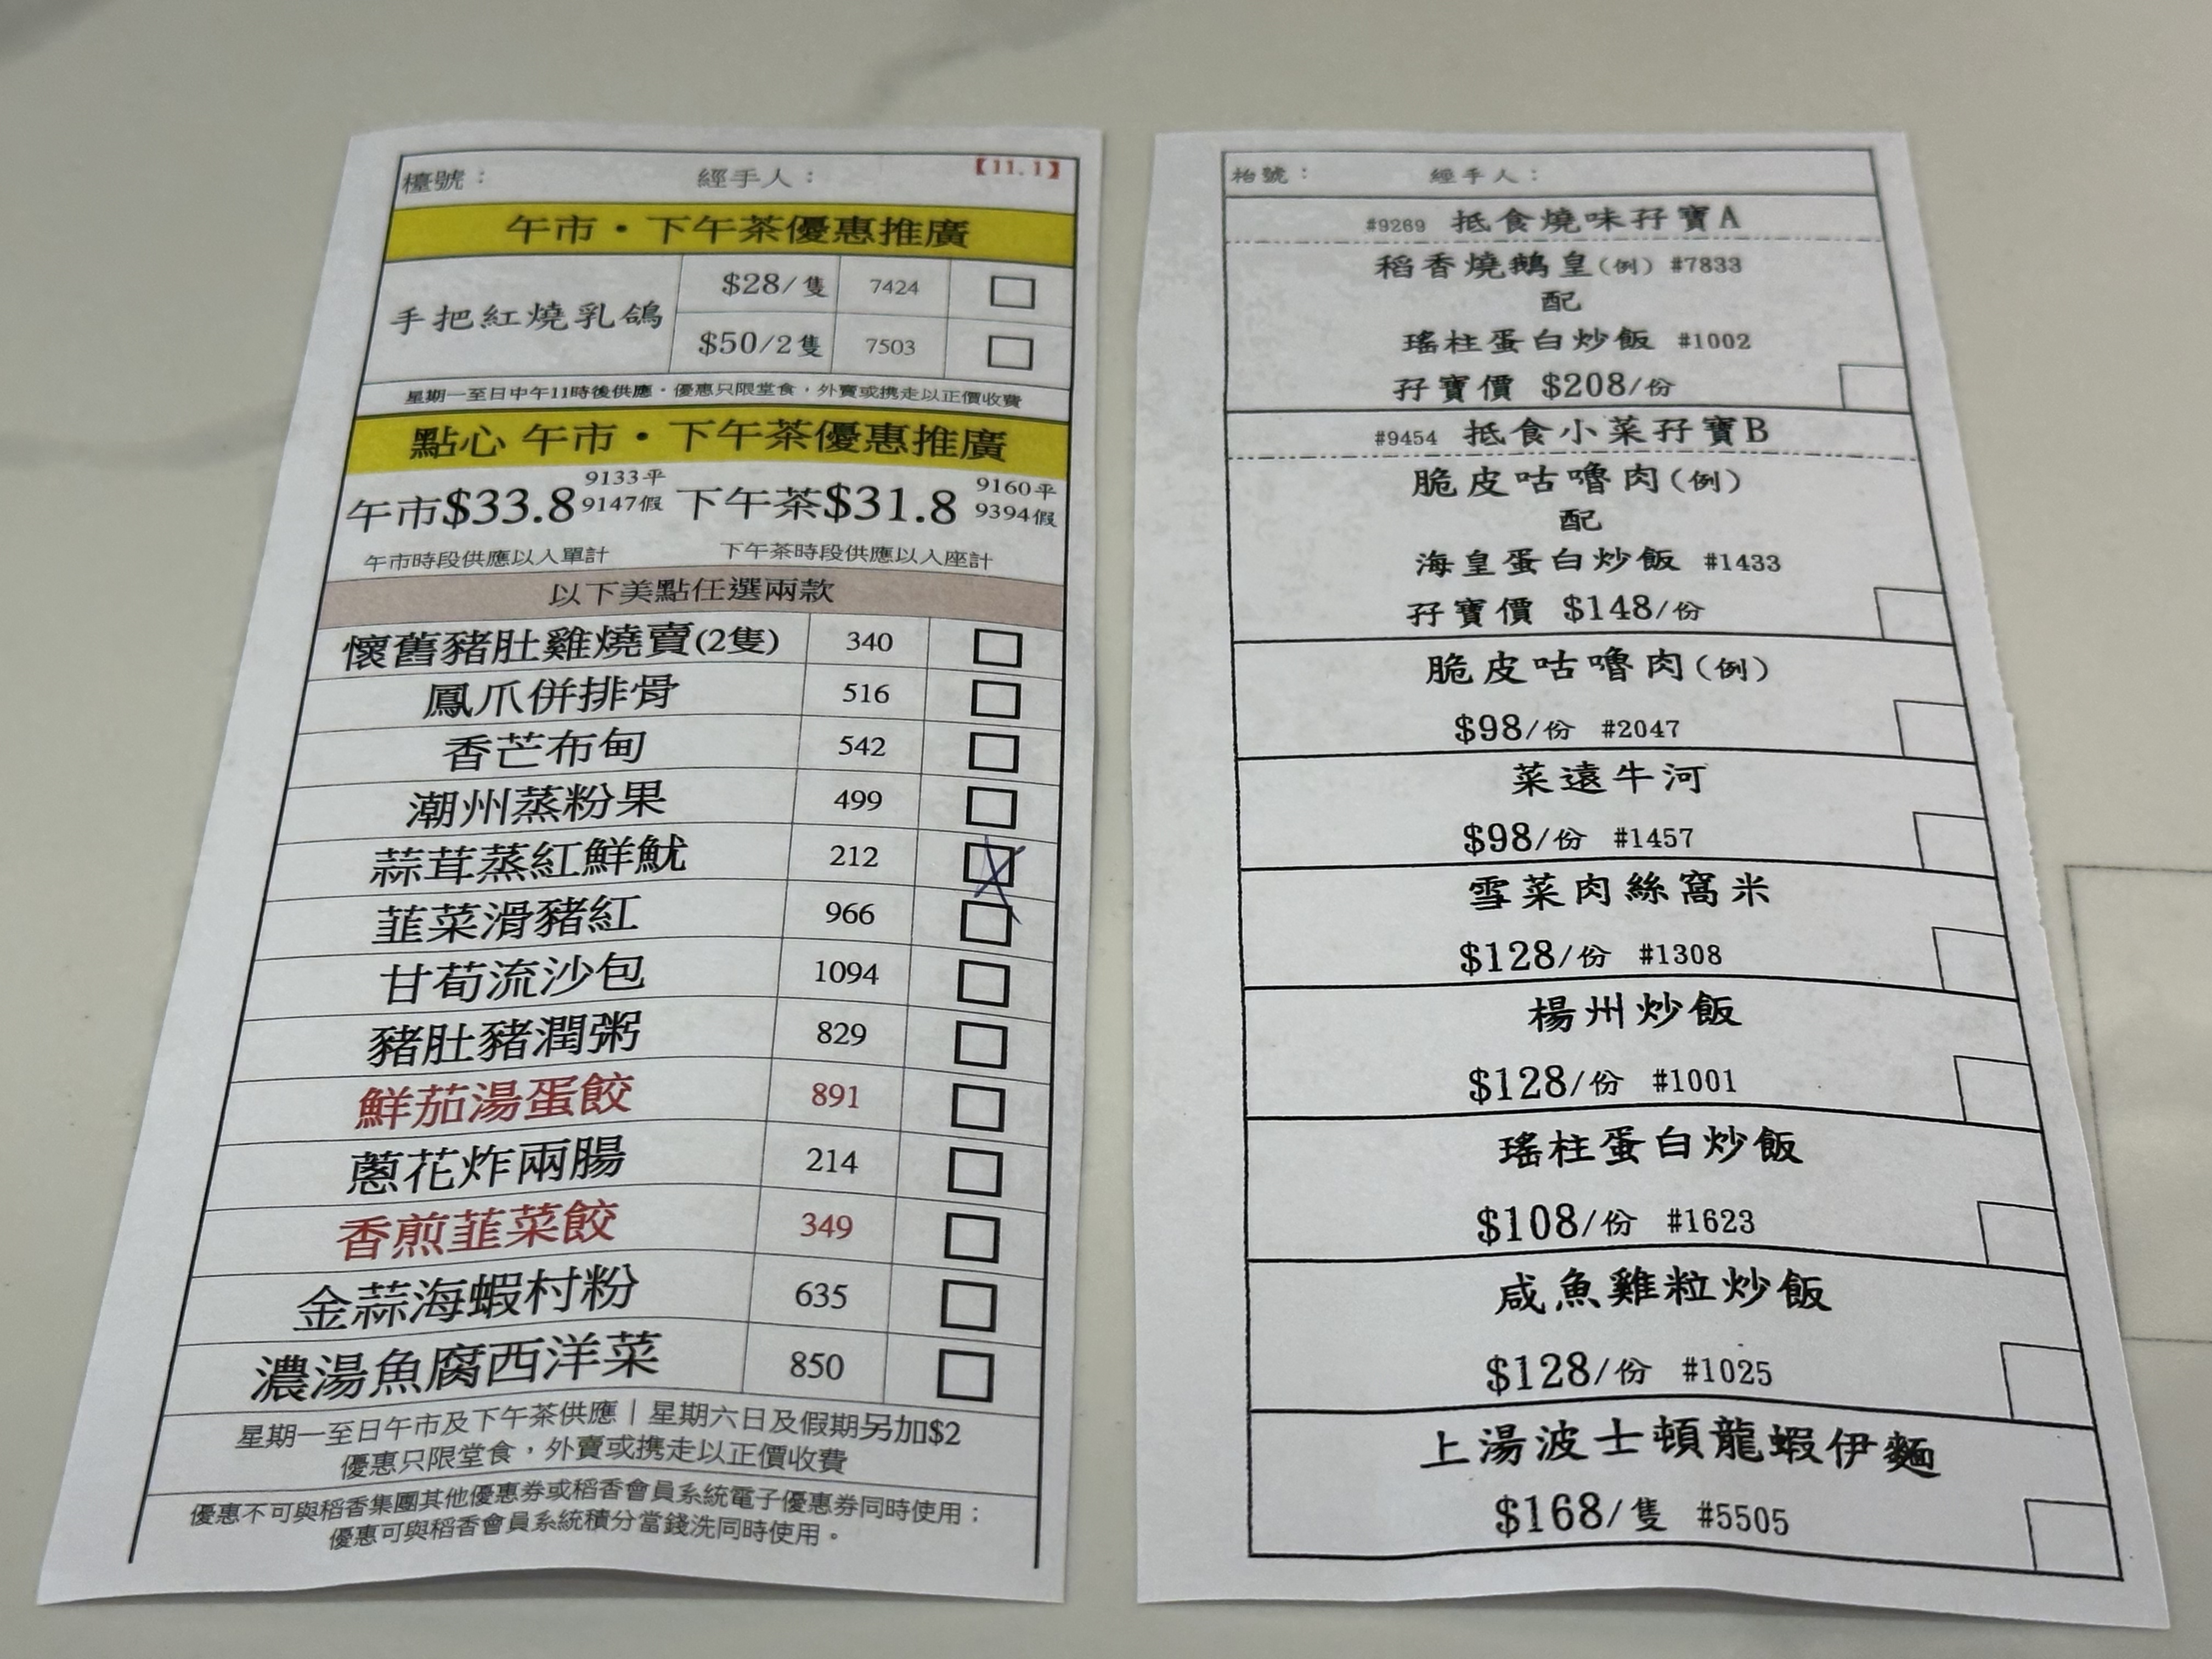 檯號： 經手人： 【11.1】
午市・下午茶優惠推廣
手把紅燒乳鴿
$28/隻 7424
$50/2隻 7503
星期一至日中午11時後供應・優惠只限堂食，外賣或携走以正價收費
點心 午市・下午茶優惠推廣
午市$33.8 9133平 9147假 下午茶$31.8 9160平 9394假
午市時段供應以入單計 下午茶時段供應以入座計
以下美點任選兩款
懷舊豬肚雞燒賣(2隻) 340
鳳爪併排骨 516
香芒布甸 542
潮州蒸粉果 499
蒜茸蒸紅鮮魷 212
韮菜滑豬紅 966
甘荀流沙包 1094
豬肚豬潤粥 829
鮮茄湯蛋餃 891
蔥花炸兩腸 214
香煎韮菜餃 349
金蒜海蝦村粉 635
濃湯魚腐西洋菜 850
星期一至日午市及下午茶供應｜星期六日及假期另加$2
優惠只限堂食，外賣或携走以正價收費
優惠不可與稻香集團其他優惠券或稻香會員系統電子優惠券同時使用；
優惠可與稻香會員系統積分當錢洗同時使用。
枱號： 經手人：
#9269 抵食燒味孖寶A
稻香燒鵝皇(例) #7833
配
瑤柱蛋白炒飯 #1002
孖寶價 $208/份
#9454 抵食小菜孖寶B
脆皮咕嚕肉(例)
配
海皇蛋白炒飯 #1433
孖寶價 $148/份
脆皮咕嚕肉(例)
$98/份 #2047
菜遠牛河
$98/份 #1457
雪菜肉絲窩米
$128/份 #1308
楊州炒飯
$128/份 #1001
瑤柱蛋白炒飯
$108/份 #1623
咸魚雞粒炒飯
$128/份 #1025
上湯波士頓龍蝦伊麵
$168/隻 #5505